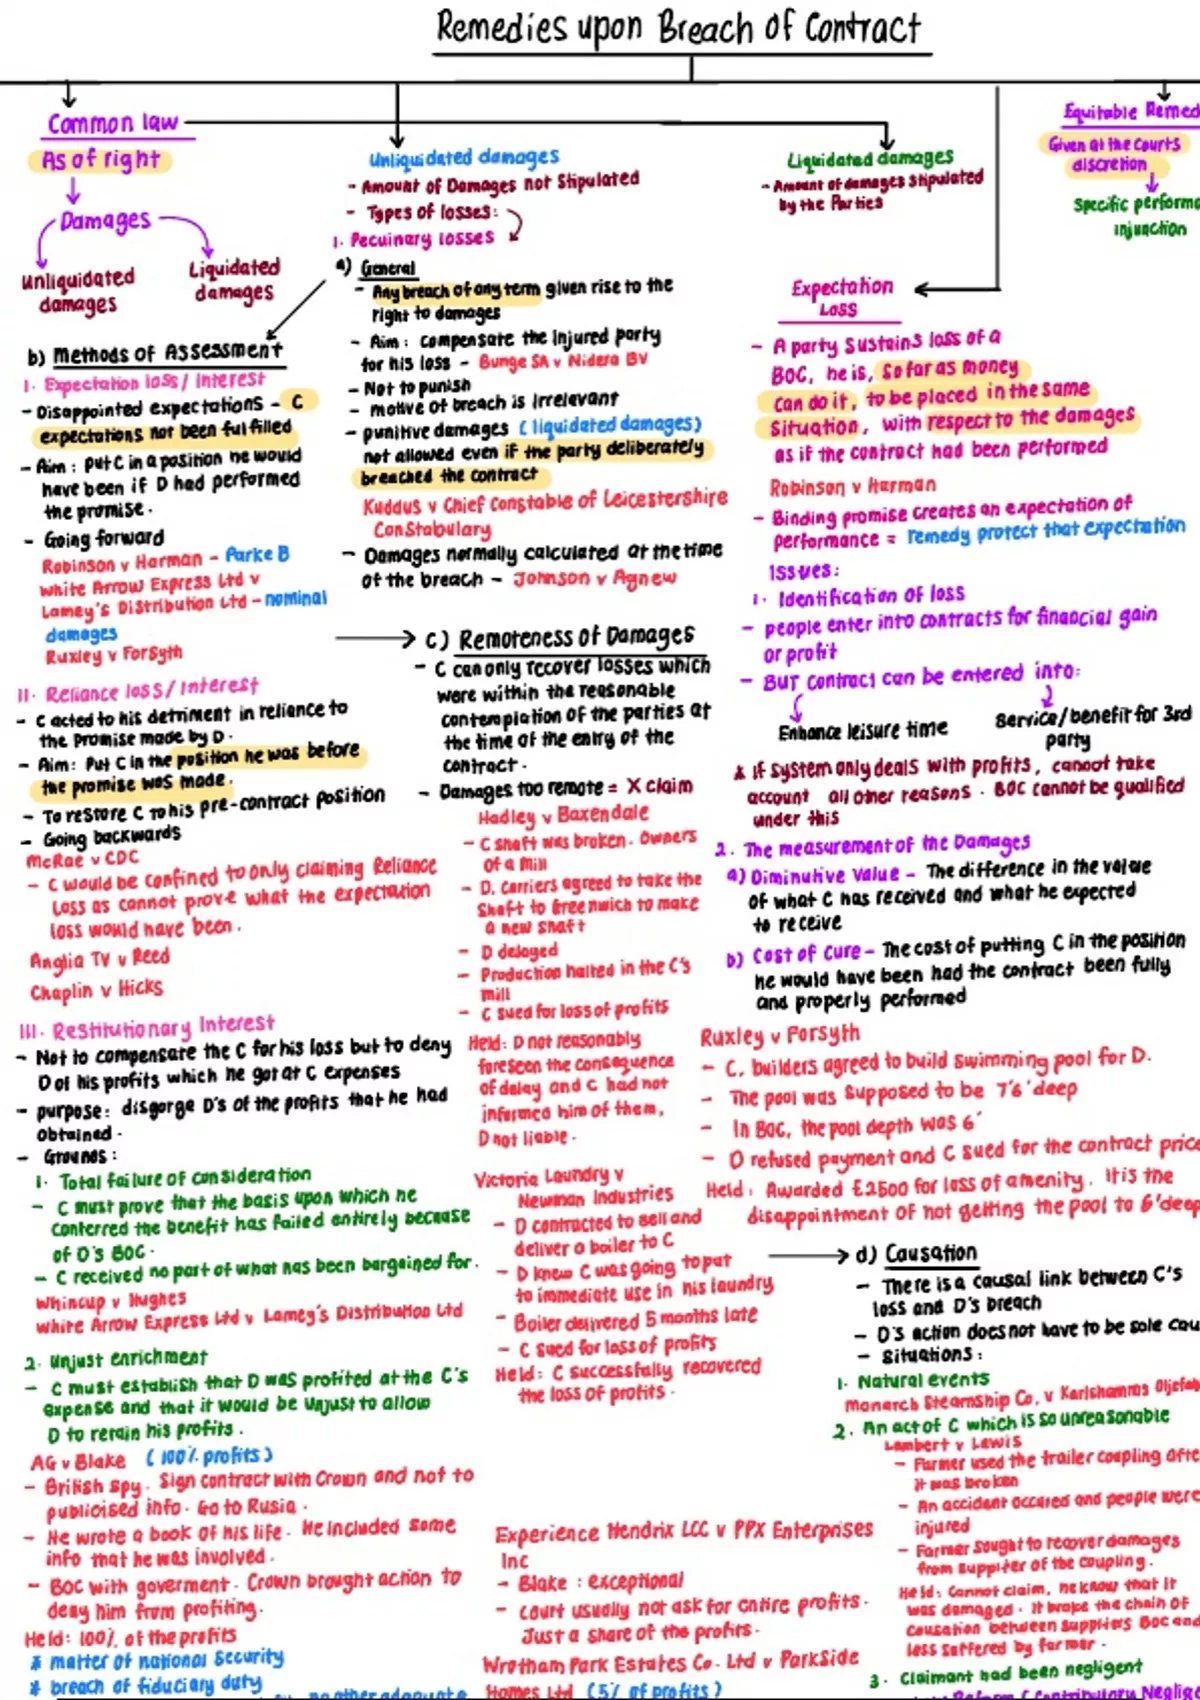 Remedies upon Breach of Contract
Common law
As of right
Damages
Unliquidated
damages
Liquidated
damages
b) Methods of Assessment
I. Expectation loss / Interest
- Disappointed expectations - C
expectations not been fulfilled
- Aim : put C in a position he would
have been if D had performed
the promise.
- Going forward
Robinson v Harman - Parke B
White Arrow Express Ltd v
Lamey's Distribution Ltd - nominal
damages
Ruxley v Forsyth
II. Reliance loss / Interest
- C acted to his detriment in reliance to
the promise made by D.
- Aim: Put C in the position he was before
the promise was made.
- To restore C to his pre-contract position
- Going backwards
McRae v CDC
- C would be confined to only claiming Reliance
Loss as cannot prove what the expectation
loss would have been.
Anglia TV v Reed
Chaplin v Hicks
III. Restitutionary Interest
- Not to compensate the C for his loss but to deny
D of his profits which he got at C expenses
- purpose: disgorge D's of the profits that he had
obtained.
- Grounds :
1. Total failure of consideration
- C must prove that the basis upon which he
conferred the benefit has failed entirely because
of D's BOC.
- C received no part of what has been bargained for.
Whincup v Hughes
White Arrow Express Ltd v Lamey's Distribution Ltd
2. Unjust enrichment
- C must establish that D was profited at the C's
expense and that it would be unjust to allow
D to retain his profits.
AG v Blake (100% profits)
- British spy. Sign contract with Crown and not to
publicised info. Go to Rusia.
- He wrote a book of his life. He included some
info that he was involved.
- BOC with goverment. Crown brought action to
deny him from profiting.
Held: 100% of the profits
* matter of national security
* breach of fiduciary duty
no other adequate
Unliquidated damages
- Amount of Damages not Stipulated
- Types of losses:
1. Pecuinary losses
a) General
- Any breach of any term given rise to the
right to damages
- Aim : compensate the injured party
for his loss - Bunge SA v Nidera BV
- Not to punish
- motive of breach is irrelevant
- punitive damages (liquidated damages)
not allowed even if the party deliberately
breached the contract
Kuddus v Chief Constable of Leicestershire
Constabulary
- Damages normally calculated at the time
of the breach - Johnson v Agnew
c) Remoteness of Damages
- C can only recover losses which
were within the reasonable
contemplation of the parties at
the time of the entry of the
contract.
- Damages too remote = X claim
Hadley v Baxendale
- C shaft was broken. Owners
of a mill
- D, carriers agreed to take the
Shaft to Greenwich to make
a new shaft
- D delayed
- Production halted in the C's
mill
- C sued for loss of profits
Held: D not reasonably
foreseen the consequence
of delay and C had not
informed him of them,
D not liable.
Victoria Laundry v
Newman Industries
- D contracted to sell and
deliver a boiler to C
- D knew C was going to put
to immediate use in his laundry
- Boiler delivered 5 months late
- C sued for loss of profits
Held: C successfully recovered
the loss of profits.
Experience Hendrix LCC v PPX Enterprises
Inc
- Blake : exceptional
- court usually not ask for entire profits.
Just a share of the profits.
Wrotham Park Estates Co. Ltd v Parkside
Homes Ltd (5% of profits)
Liquidated damages
- Amount of damages stipulated
by the Parties
Expectation
Loss
- A party sustains loss of a
BOC, he is, so far as money
can do it, to be placed in the same
situation, with respect to the damages
as if the contract had been performed
Robinson v Harman
- Binding promise creates an expectation of
performance = remedy protect that expectation
Issues:
1. Identification of loss
- people enter into contracts for financial gain
or profit
- BUT contract can be entered into:
Enhance leisure time
Service/benefit for 3rd
party
* if system only deals with profits, cannot take
account all other reasons. BOC cannot be qualified
under this
2. The measurement of the Damages
a) Diminutive Value - The difference in the value
of what C has received and what he expected
to receive
b) Cost of Cure - The cost of putting C in the position
he would have been had the contract been fully
and properly performed
Ruxley v Forsyth
- C, builders agreed to build swimming pool for D.
- The pool was supposed to be 7'6' deep
- In BOC, the pool depth was 6'
- D refused payment and C sued for the contract price
Held: Awarded £2500 for loss of amenity. It is the
disappointment of not getting the pool to 6' deep
d) Causation
- There is a causal link between C's
loss and D's breach
- D's action does not have to be sole cau
- Situations :
1. Natural events
Monarch Steamship Co. v Karlshamns Oljefab
2. An act of C which is so unreasonable
Lambert v Lewis
- Farmer used the trailer coupling afte
it was broken
- An accident occured and people were
injured
- Farmer sought to recover damages
from supplier of the coupling.
Held: Cannot claim, he know that it
was damaged. It broke the chain of
causation between suppliers BOC and
loss suffered by farmer.
3. Claimant had been negligent
Reform (Contributory Neglig
Equitable Remed
Given at the Courts
discretion
Specific performa
injunction